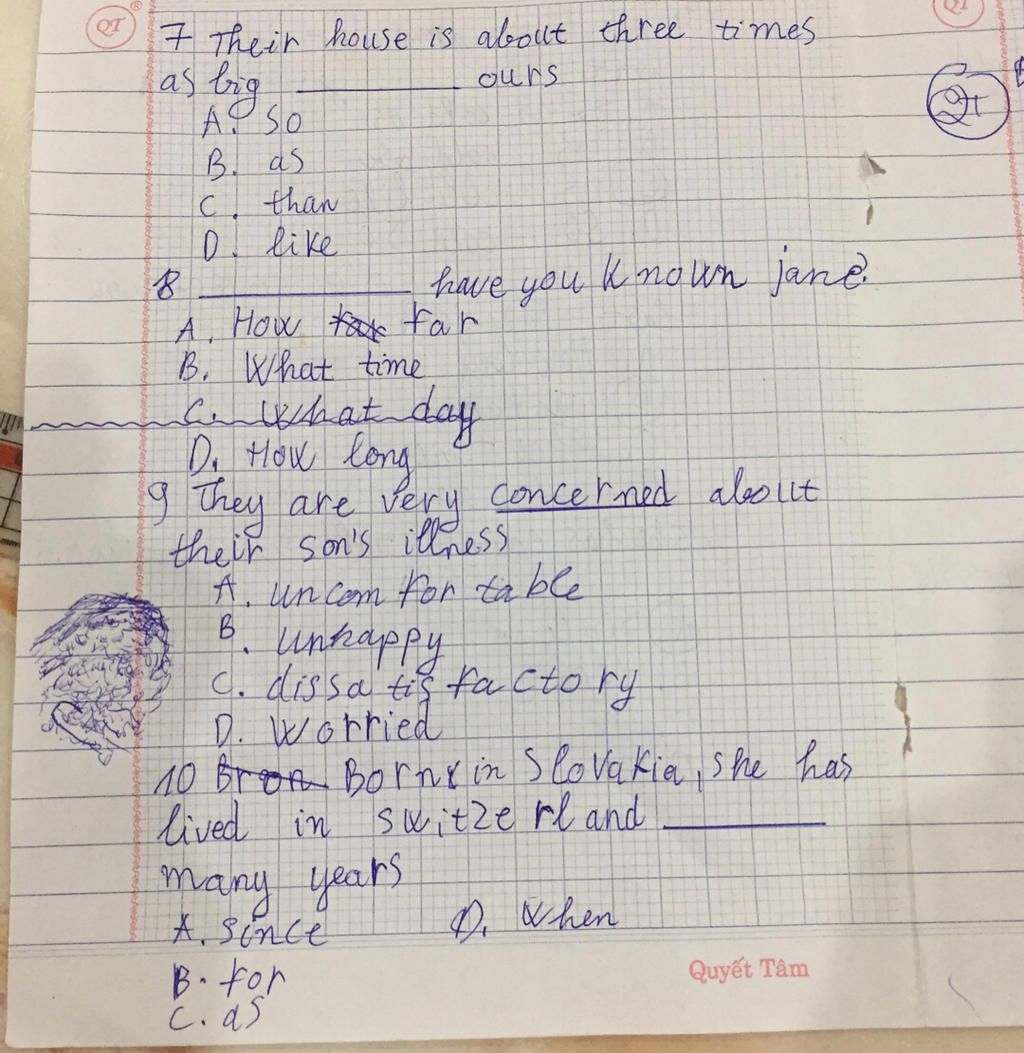 QT ® QT
7 Their house is about three times
as big ________ ours
A. so
B. as
C. than
D. like
8 ________ have you known jane?
A. How far far
B. What time
C. What day
D. How long
9 They are very concerned about
their son's illness
A. uncomfortable
B. unhappy
C. dissatisfactory
D. Worried
10 Bron Born in Slovakia, she has
lived in switzerland ________
many years
A. since D. When
B. for
C. as
Quyết Tâm